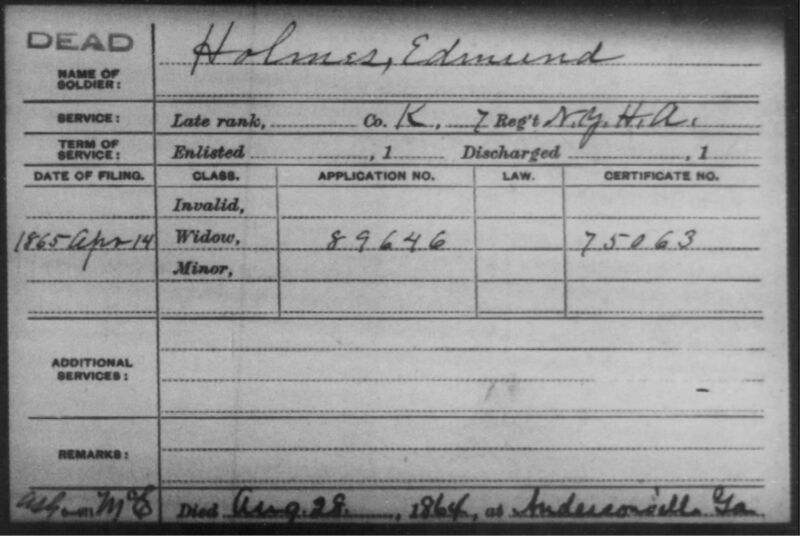 DEAD
Holmes, Edmund
NAME OF SOLDIER:
SERVICE: Late rank, Co. K, 7 Reg't N.Y.H.A.
TERM OF SERVICE: Enlisted , 1 Discharged , 1
DATE OF FILING. CLASS. APPLICATION NO. LAW. CERTIFICATE NO.
Invalid,
1865 Apr 14 Widow, 89646 75063
Minor,
ADDITIONAL SERVICES:
REMARKS:
Died Aug. 28, 1864, at Andersonville Ga